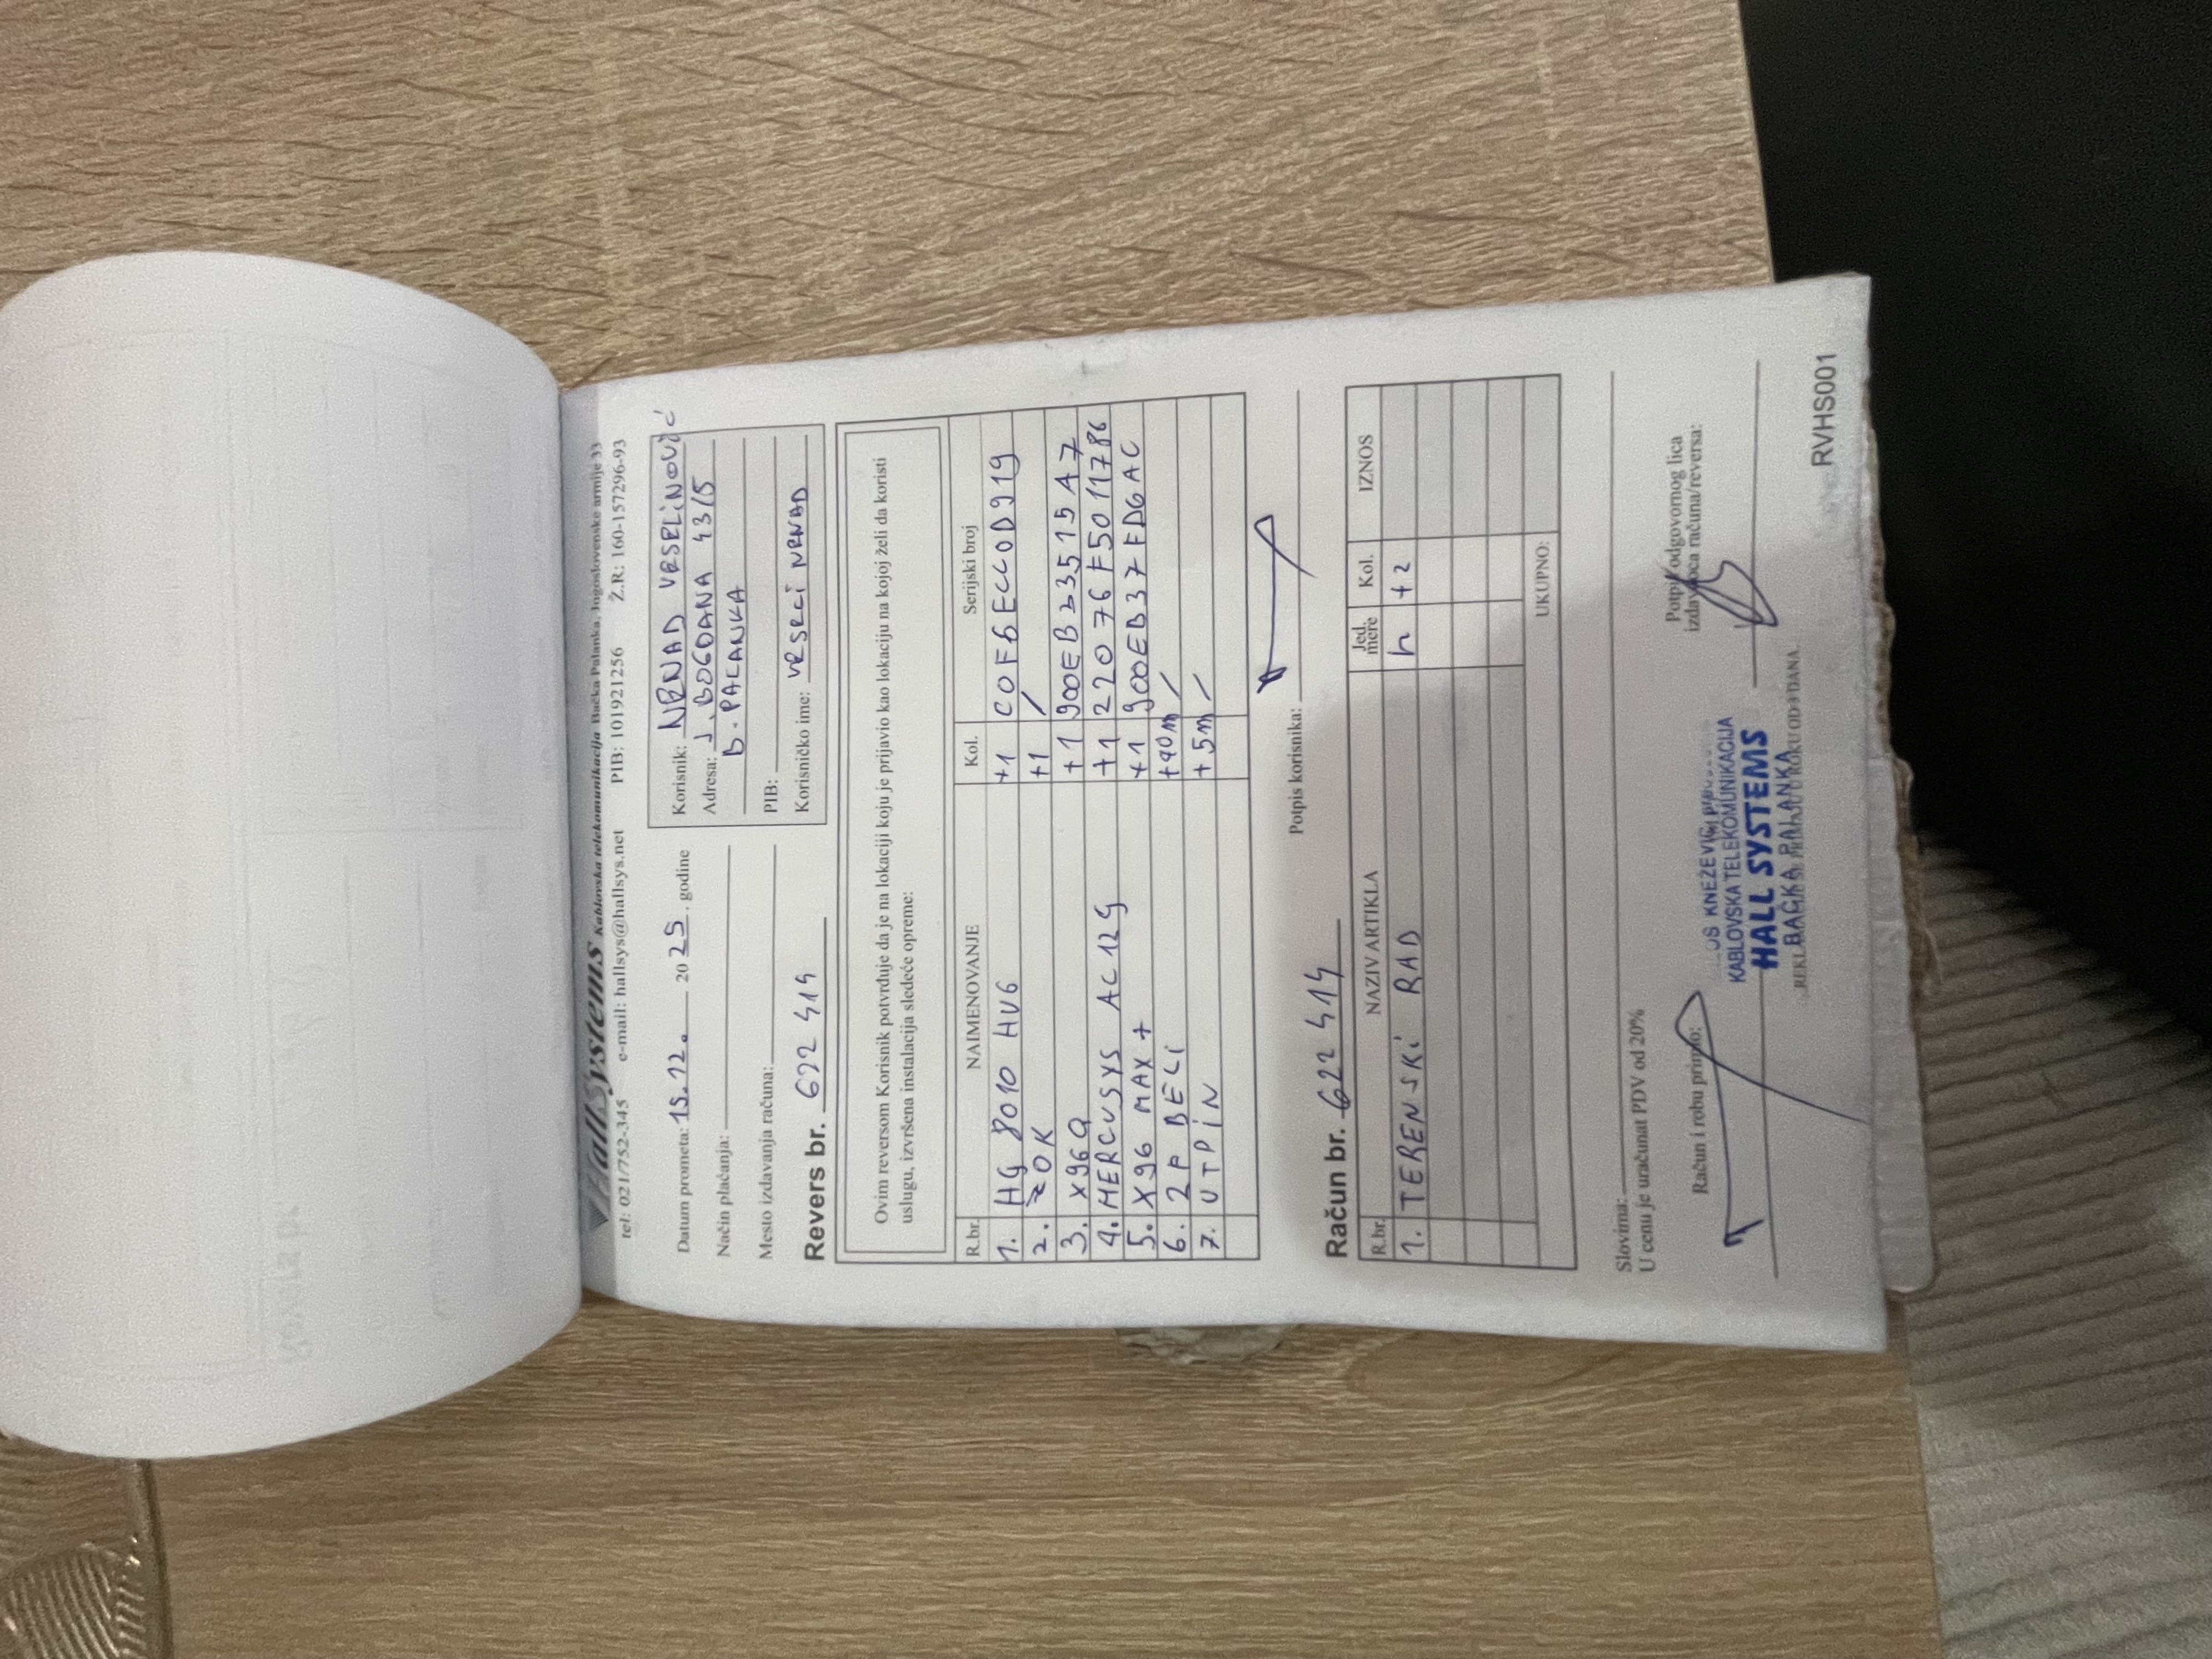 HallSystems Kablovska telekomunikacija Bačka Palanka, Jugoslovenske armije 33
tel: 021/752-345 e-mail: hallsys@hallsys.net PIB: 101921256 Ž.R.: 160-157296-93
Datum prometa: 15.12. 2025. godine
Način plaćanja:
Mesto izdavanja računa:
Korisnik: NENAD VESELINOVIĆ
Adresa: J. BOGDANA 43/5
B. PALANKA
PIB:
Korisničko ime: VESELI NENAD
Revers br. 622 414
Ovim reversom Korisnik potvrđuje da je na lokaciji koju je prijavio kao lokaciju na kojoj želi da koristi
uslugu, izvršena instalacija sledeće opreme:
R.br. NAIMENOVANJE Kol. Serijski broj
1. HG 8010 HV6 +1 COF6ECCOD919
2. ZOK +1 /
3. X96Q +1 900EB23515A7
4. MERCUSYS AC12G +1 22076F5011786
5. X96 MAX + +1 900EB37FDGAC
6. 2F BELI +40m /
7. UTP IN +5m /
Potpis korisnika:
Račun br. 622 414
R.br. NAZIV ARTIKLA Jed. mere Kol. IZNOS
1. TERENSKI RAD h +2
UKUPNO:
Slovima:
U cenu je uračunat PDV od 20%
Račun i robu primio:
Potpis odgovornog lica
izdavaoca računa/reversa:
KNEŽEVIĆ
KABLOVSKA TELEKOMUNIKACIJA
HALL SYSTEMS
BAČKA PALANKA
RVHS001